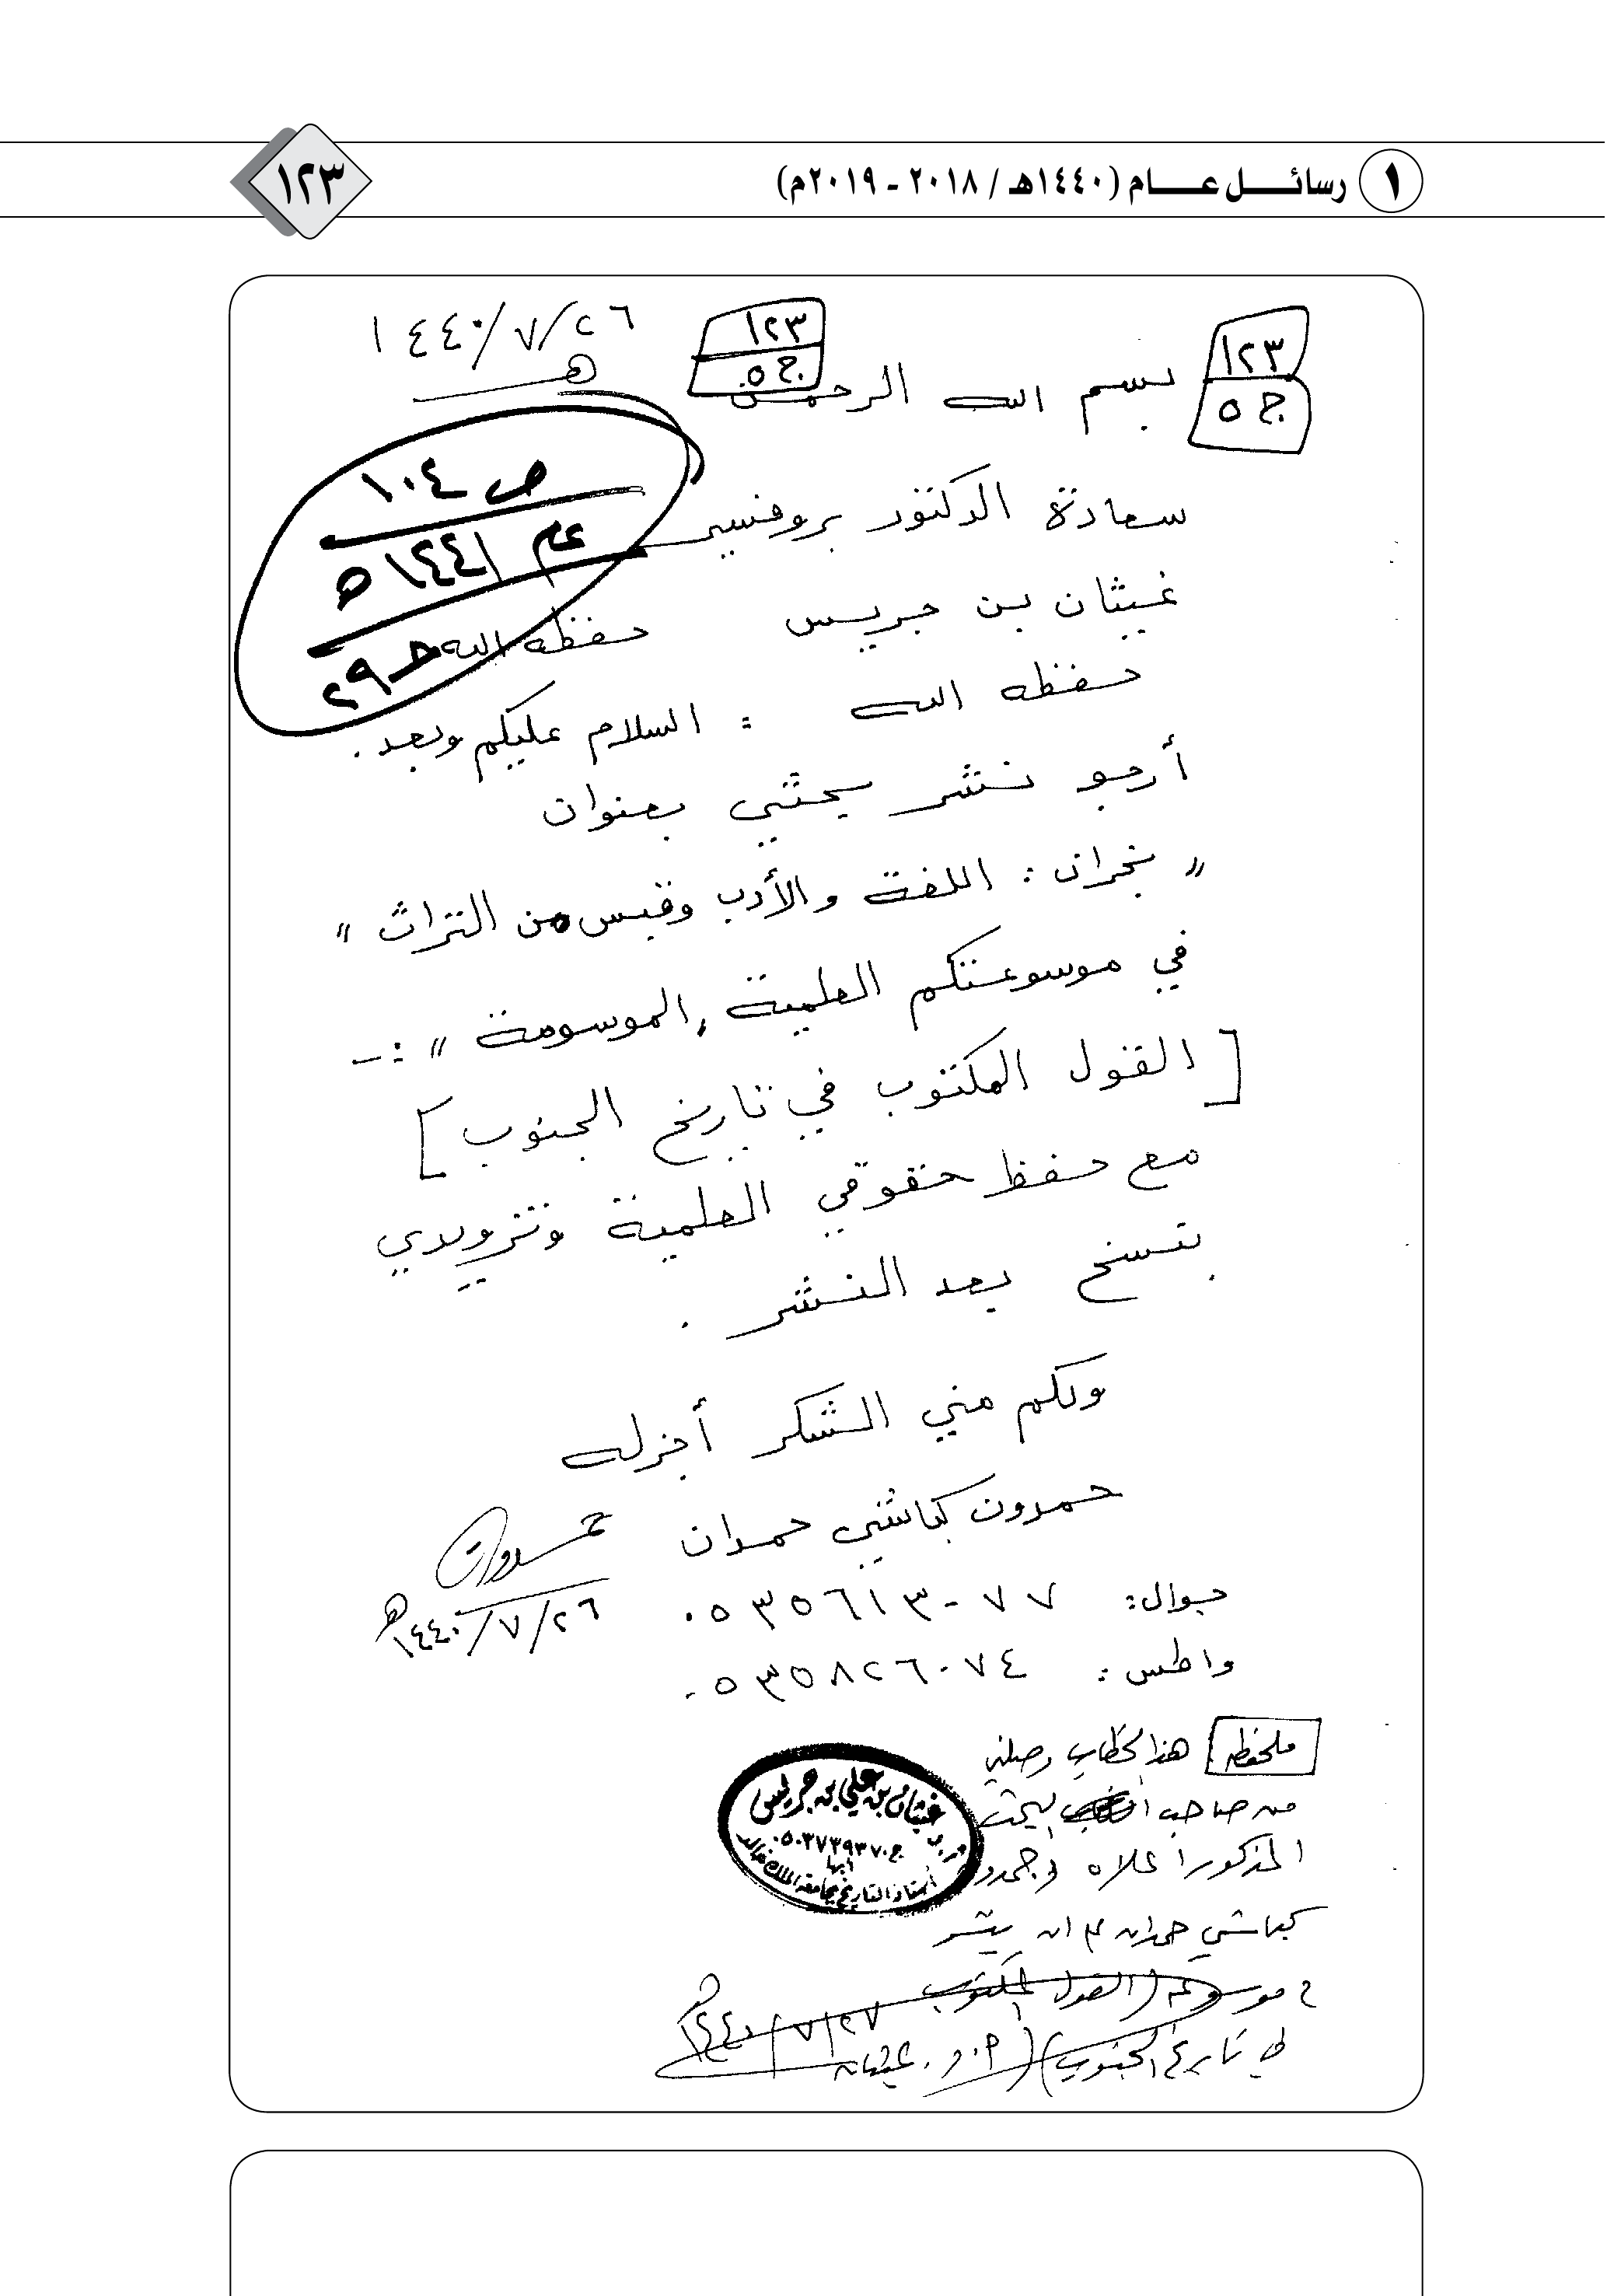 ١ رسائل عام (١٤٤٠هـ / ٢٠١٨ - ٢٠١٩م)
١٢٣
١٤٤٠/٧/٢٦ هـ
١٢٣
ج٥
١٢٣
ج٥
بسم الله الرحمن
ص ١٠٤
عام ١٤٤١ هـ
جـ ٢٩
سعادة الدكتور بروفسير
غيثان بن جريس حفظه الله
حفظه الله : السلام عليكم وبعد .
أرجو نشر بحثي بعنوان
" نجران : اللغة والأدب وقبس من التراث "
في موسوعتكم العلمية "الموسومة" :-
[ القول المكتوب في تاريخ الجنوب ]
مع حفظ حقوقي العلمية وتزويدي
بنسخ بعد النشر .
ولكم مني الشكر أجزله
حمدون كباشي حمدان
حمدون
١٤٤٠/٧/٢٦ هـ
جوال: ٠٥٣٥٦١٣٠٧٧
واطس: ٠٥٣٥٨٢٦٠٧٤
ملحظه هذا الخطاب وصلني
من صاحب البحث
المذكور أعلاه د حمدون
كباشي حمدان ان ينشر
موسوعة (القول المكتوب
في تاريخ الجنوب) أ.د. غيثان
١٤٤٠/٧/٢٧ هـ
غيثان بن علي بن جريس
ج ٠٥٠٣٧٣٩٣٧٠
ابها
أستاذ التاريخ بجامعة الملك خالد